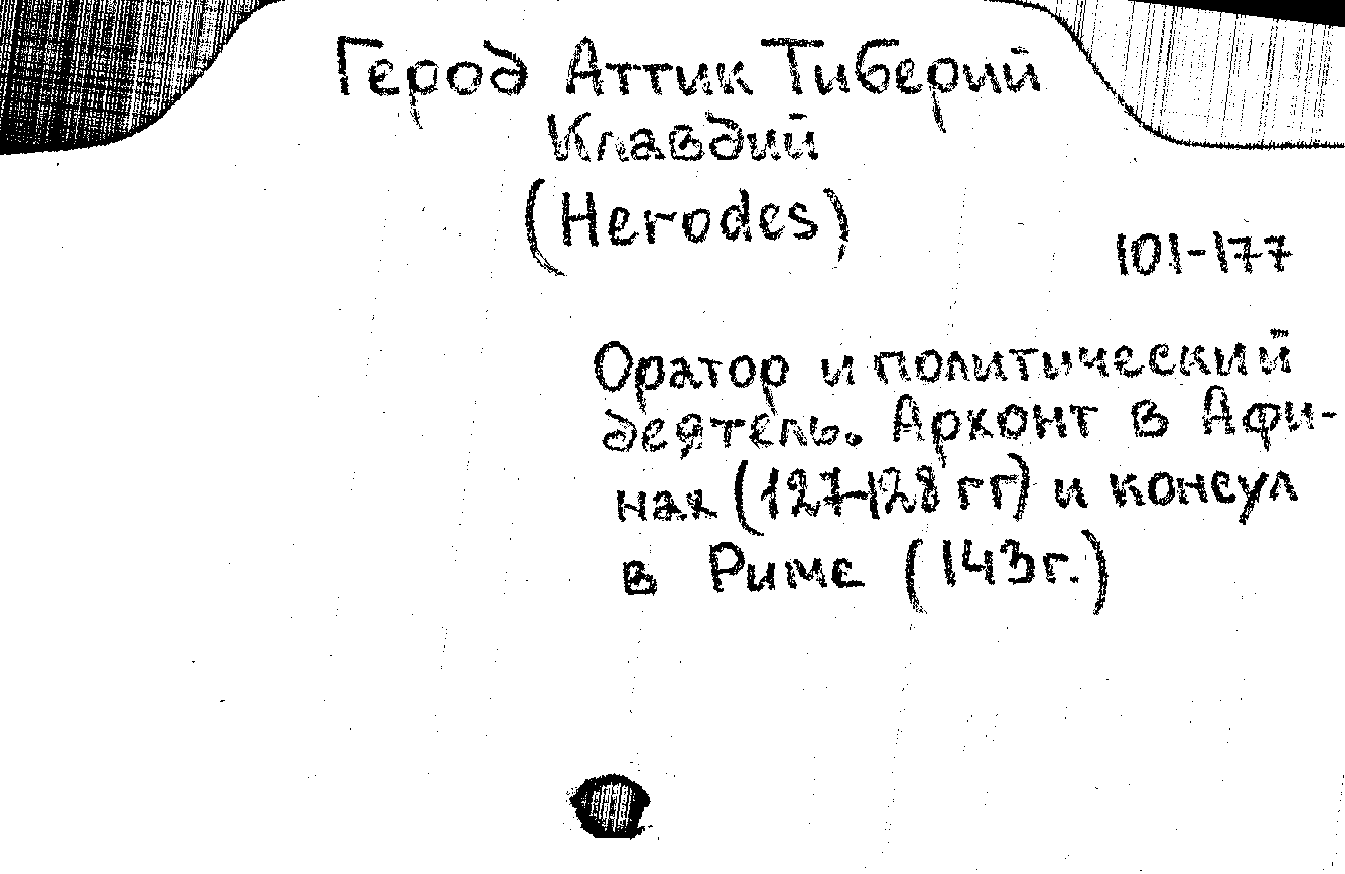 Герод Аттик Тиберий
Клавдий
(Herodes)
101-177
Оратор и политический
деятель. Архонт в Афи-
нах (127-128 гг) и консул
в Риме (143г.)